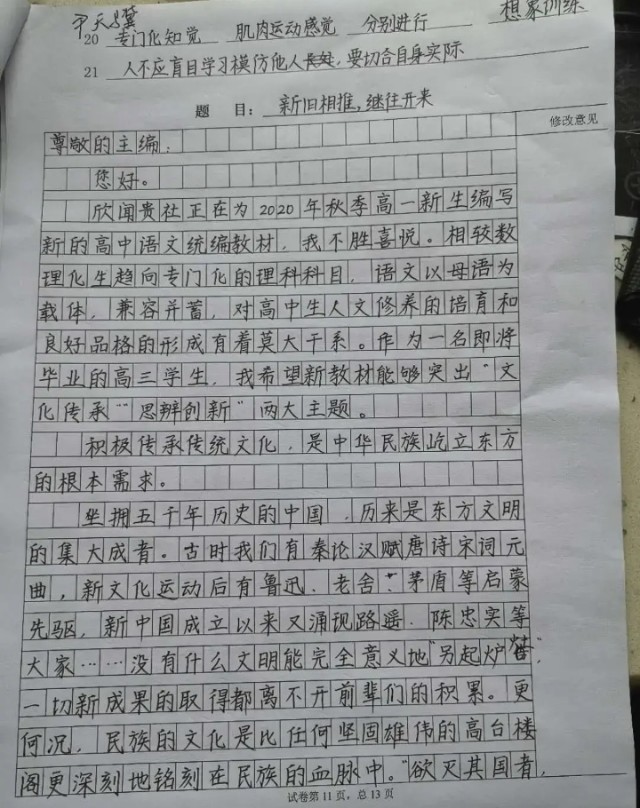 想家训练
20 专门化知觉 肌肉运动感觉 分别进行
21 人不应盲目学习模仿他人，要切合自身实际
题 目：新旧相推，继往开来
修改意见
尊敬的主编：
您好。
欣闻贵社正在为2020年秋季高一新生编写
新的高中语文统编教材，我不胜喜悦。相较数
理化生趋向专门化的理科科目，语文以母语为
载体，兼容并蓄，对高中生人文修养的培育和
良好品格的形成有着莫大干系。作为一名即将
毕业的高三学生，我希望新教材能够突出“文
化传承”“思辨创新”两大主题。
积极传承传统文化，是中华民族屹立东方
的根本需求。
坐拥五千年历史的中国，历来是东方文明
的集大成者。古时我们有秦论汉赋唐诗宋词元
曲，新文化运动后有鲁迅、老舍、茅盾等启蒙
先驱，新中国成立以来又涌现路遥、陈忠实等
大家……没有什么文明能完全意义地“另起炉灶”，
一切新成果的取得都离不开前辈们的积累。更
何况，民族的文化是比任何坚固雄伟的高台楼
阁更深刻地铭刻在民族的血脉中。“欲灭其国者，
试卷第11页，总13页